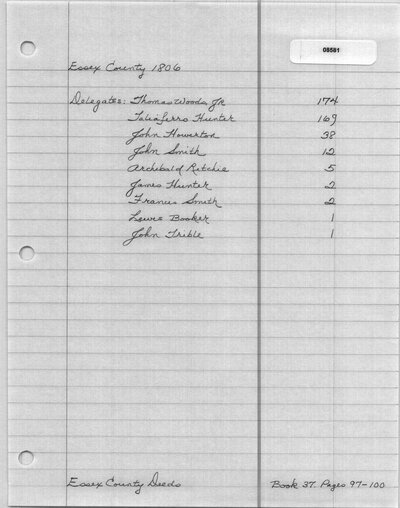 08581
Essex County 1806
Delegates: Thomas Woods, Jr 174
Taliaferro Hunter 169
John Howerton 38
John Smith 12
Archibald Ritchie 5
James Hunter 2
Francis Smith 2
Lewis Booker 1
John Trible 1
Essex County Deeds Book 37. Pages 97-100